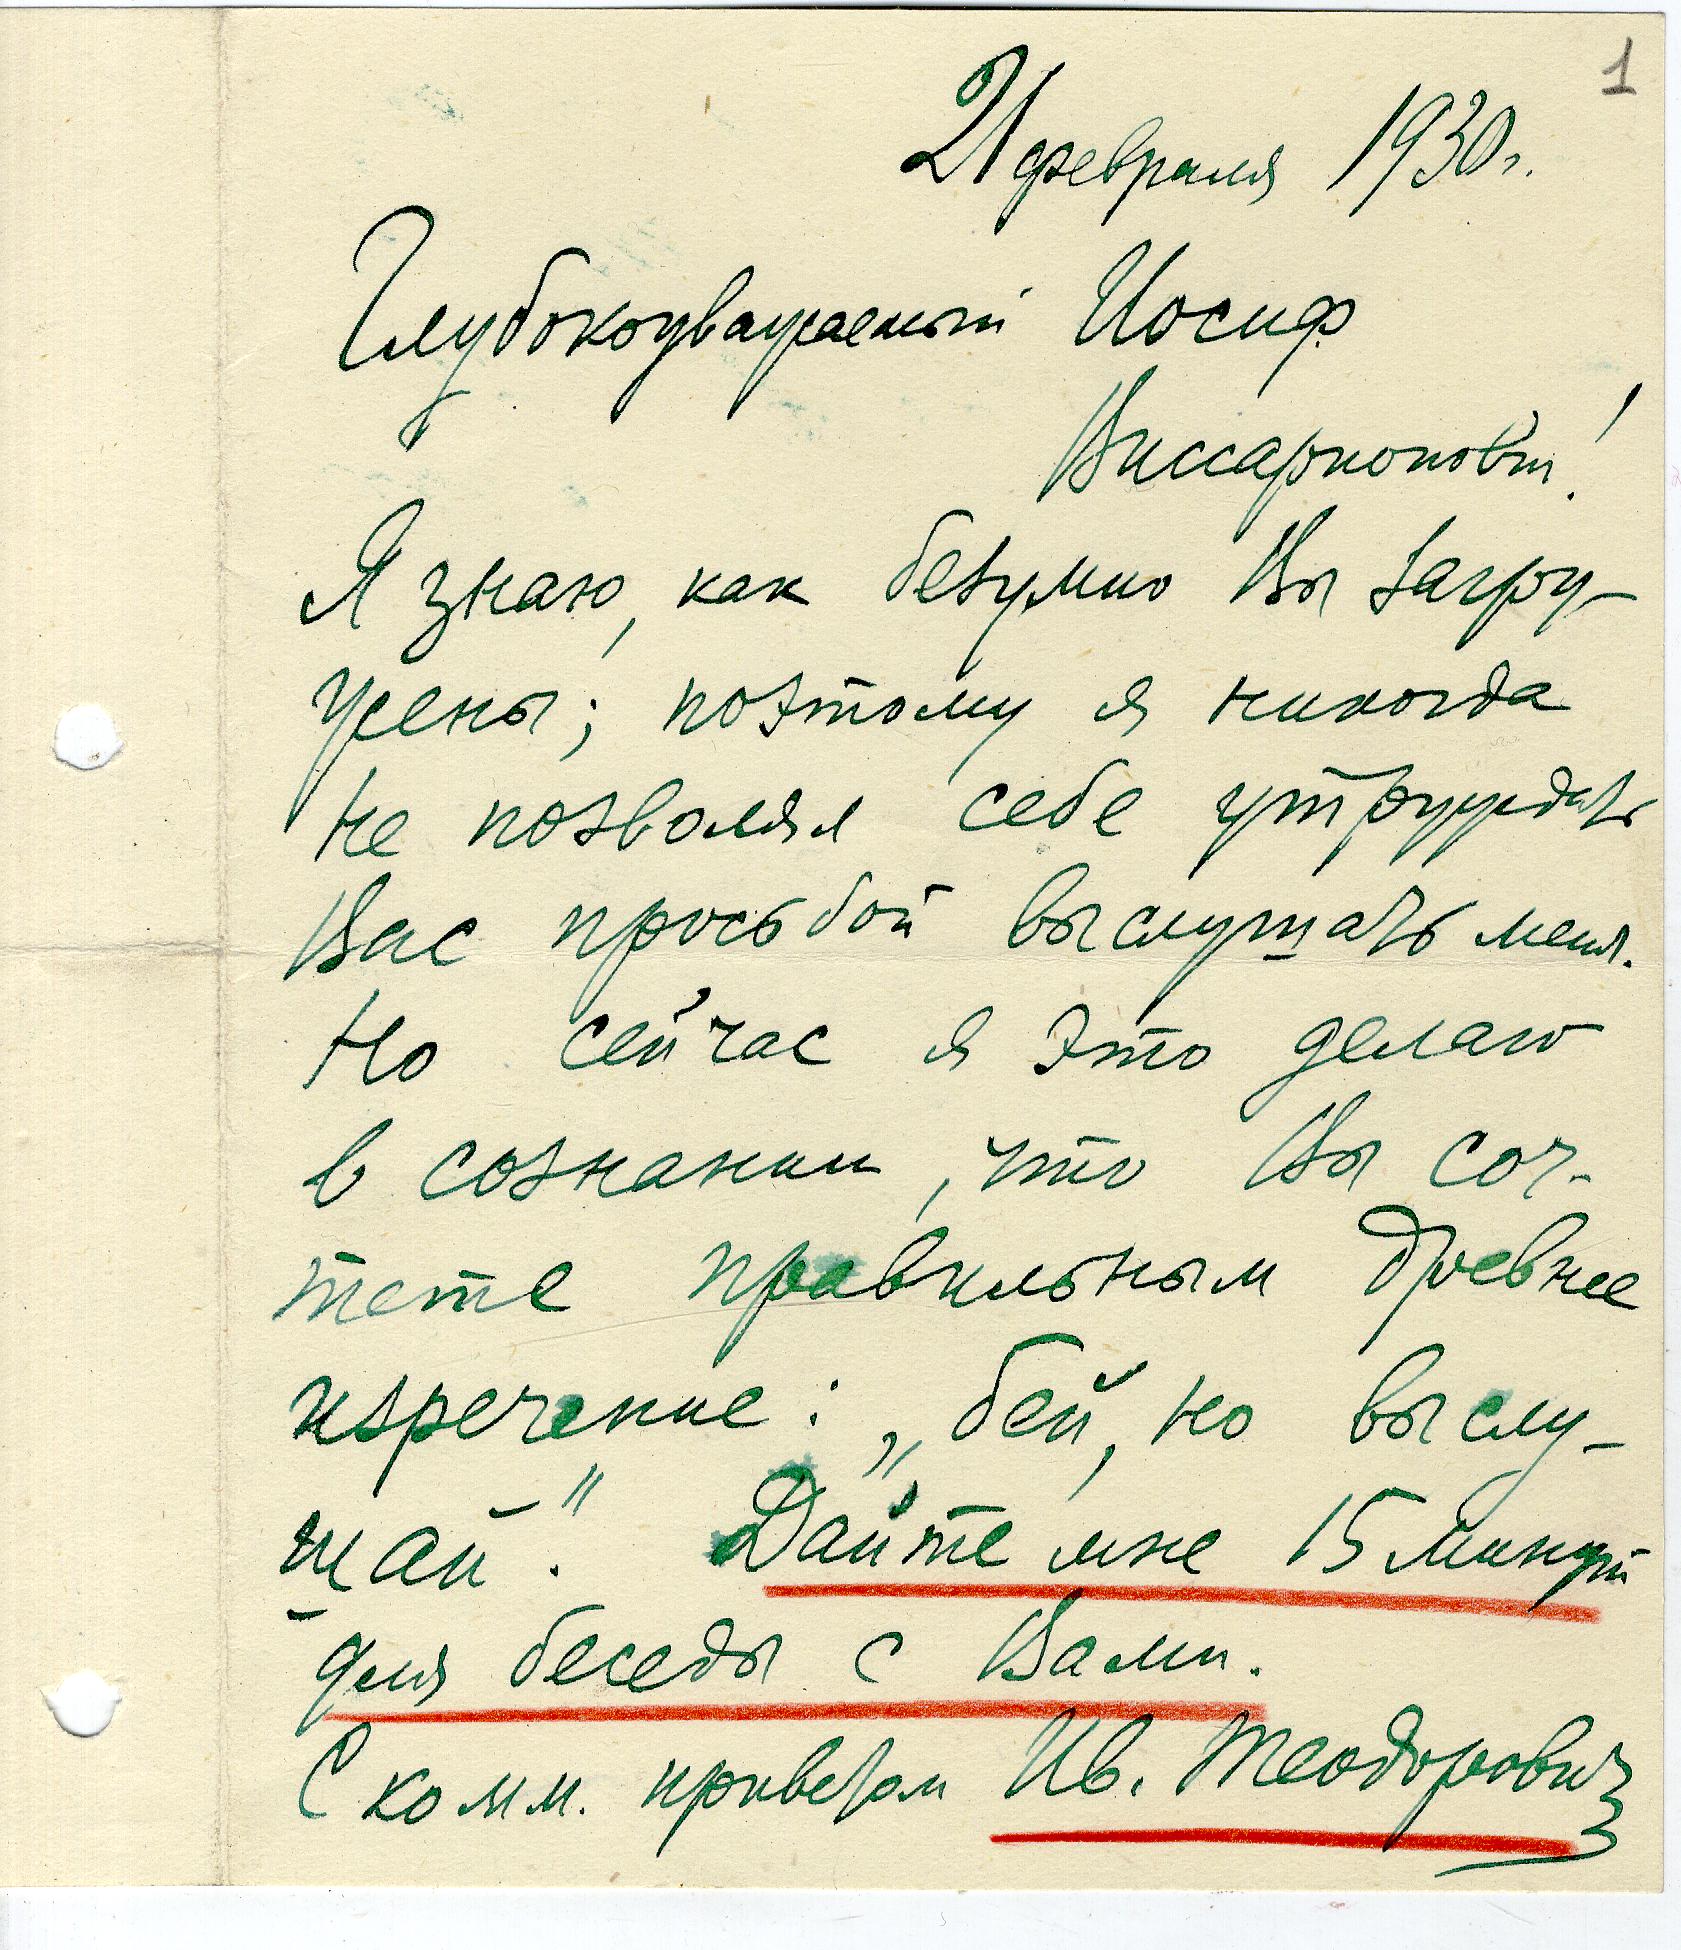 1
21 февраля 1930 г.
Глубокоуважаемый Иосиф
Виссарионович!
Я знаю, как безумно Вы загру-
жены; поэтому я никогда
не позволял себе утруждать
Вас просьбой выслушать меня.
Но сейчас я это делаю
в сознании, что Вы соч-
тете правильным древнее
изречение: „бей, но выслу-
шай“. Дайте мне 15 минут
для беседы с Вами.
С комм. приветом Ив. Теодорович